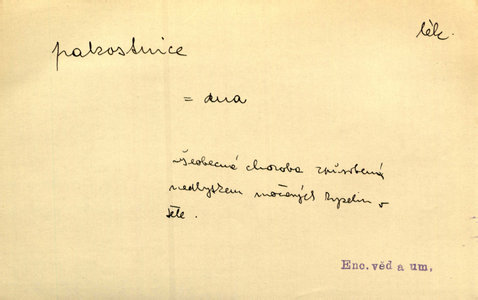 lék.
pakostnice
= dna
všeobecná choroba způsobená
nadbytkem močených kyselin v
těle.
Enc. věd a um.